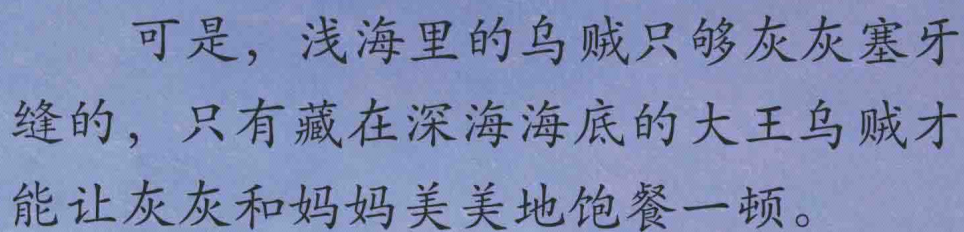 可是，浅海里的乌贼只够灰灰塞牙
缝的，只有藏在深海海底的大王乌贼才
能让灰灰和妈妈美美地饱餐一顿。